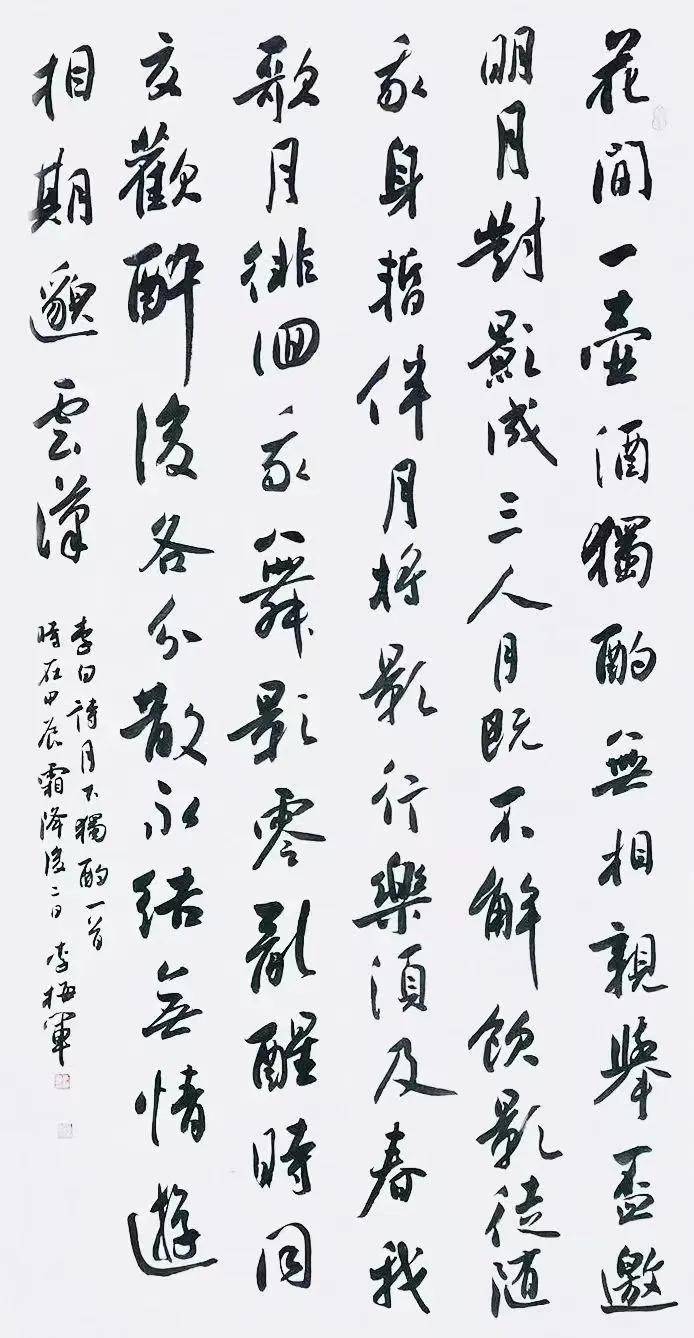 花間一壺酒獨酌無相親舉盃邀
明月對影成三人月既不解飲影徒隨
我身暫伴月將影行樂須及春我
歌月徘徊我舞影零亂醒時同
交歡醉後各分散永結無情遊
相期邈雲漢
李白詩月下獨酌一首
時在甲辰霜降後二日 李梅軍